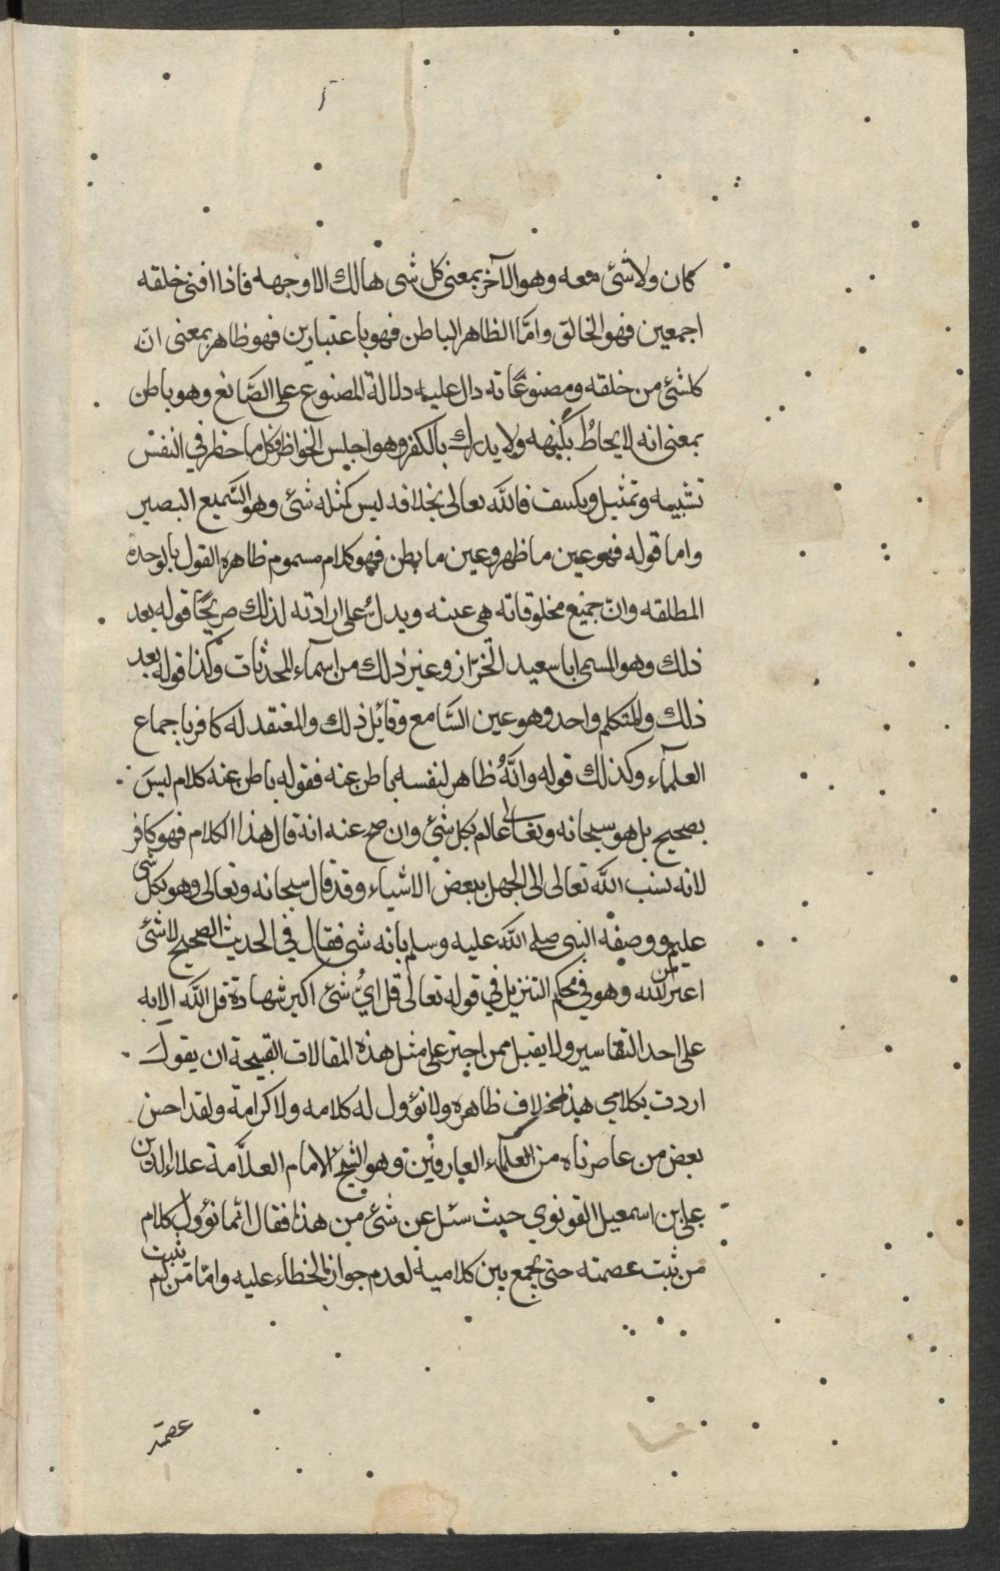 كان ولا شئ معه وهو الآخر بمعنى كل شى هالك الا وجهه فاذا افنى خلقه
اجمعين فهو الخالق وامّا الظاهر الباطن فهو باعتبارين فهو ظاهر بمعنى انّ
كلشئ من خلقه ومصنوعاته دال عليه دلالة المصنوع على الصّانع وهو باطن
بمعنى انه لا يحاط بكنهه ولا يدرك بالكفر وهو اجليس الخواظر فكل ما خطر في النفس
تشبيه وتمثيل ويكسف فالله تعالى بخلافه ليس كمثله شئ وهو السّميع البصير
واما قوله فهو عين ما ظهر وعين ما بطن فهو كلام مسموم ظاهره القول بالوحدة
المطلقه وانّ جميع مخلوقاته هى عينه ويدل على ارادته لذلك صريحًا قوله بعد
ذلك وهو المسمى ابا سعيد الخرّاز وغير ذلك من اسماء المحدثات وكذا قوله بعد
ذلك والمتكلم واحد وهو عين السّامع وقايل ذلك والمعتقد له كافر باجماع
العلماء وكذلك قوله وانّه ظاهر لنفسه باطن عنه فقوله باطن عنه كلام ليس
بصحيح بل هو سبحانه وتعالى عالم بكل شئ وان صح عنه انه قال هذا الكلام فهو كافر
لانه نسب الله تعالى الى الجهل ببعض الاشياء وقد قال سبحانه وتعالى وهو بكل شى
عليم ووصفه النبى صلى الله عليه وسلم بانه شى فقال في الحديث الصحيح لا شئ
اغير من الله وهو في محكم التنزيل في قوله تعالى قل ايُّ شئ اكبر شهادة قل الله الايه
على احد التفاسير ولا يقبل ممن اجترعلى مثل هذه المقالات القبيحة ان يقول
اردت بكلامي هذا خلاف ظاهره ولا نؤول له كلامه ولا كرامة ولقد احسن
بعض من عاصرناه من العلماء العارفين وهو الشيخ الامام العلّامة علاء الدين
على ابن اسمعيل القونوي حيث سئل عن شئ من هذا فقال انما نؤول كلام
من ثبت عصمته حتى يجمع بين كلاميه لعدم جواز الخطاء عليه وامّا من لم تثبت
عصمته